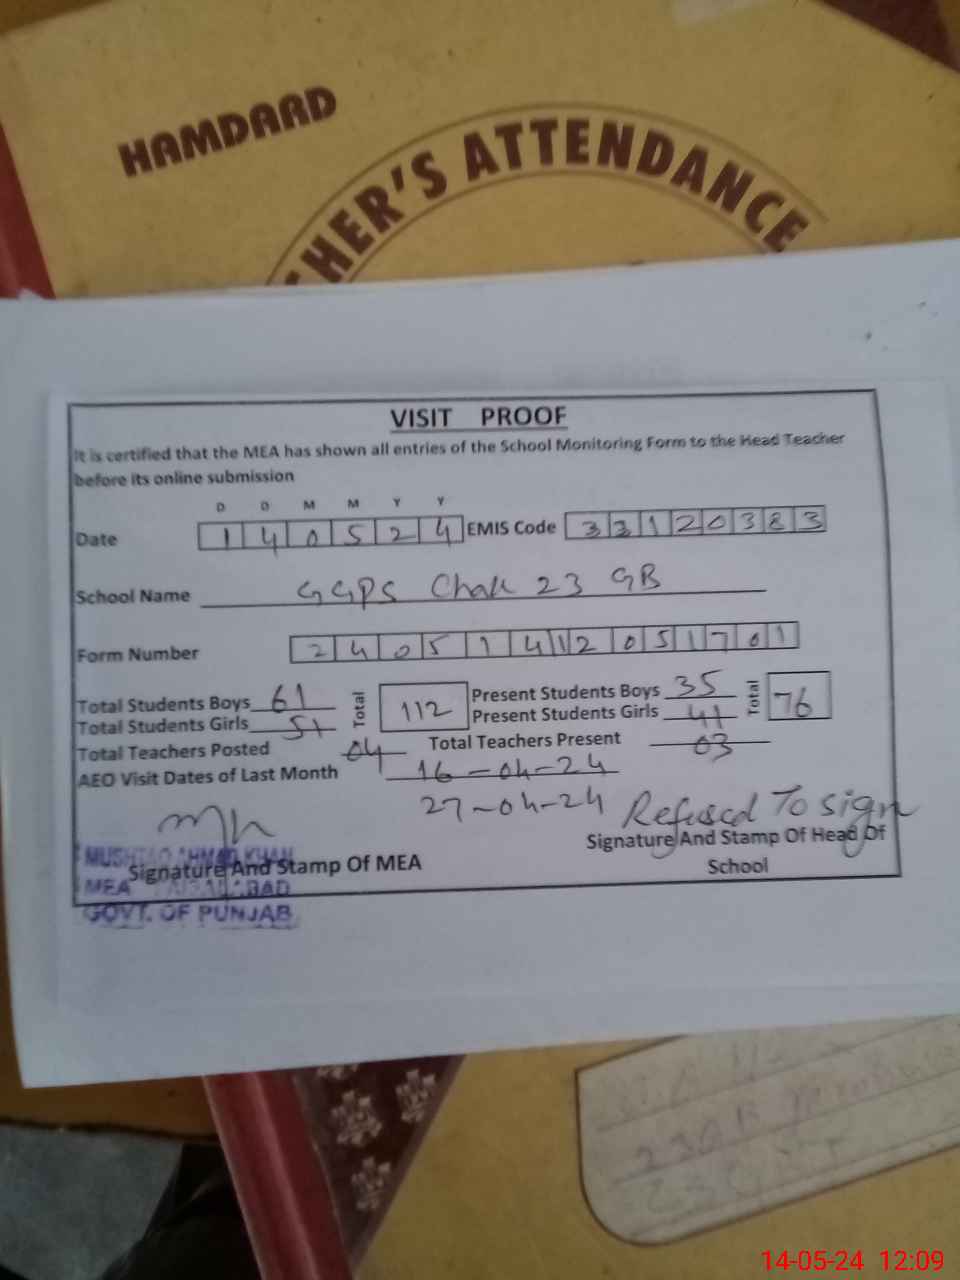 HAMDARD
HER'S ATTENDANCE
VISIT PROOF
It is certified that the MEA has shown all entries of the School Monitoring Form to the Head Teacher
before its online submission
D D M M Y Y
Date 1 4 0 5 2 4 EMIS Code 3 3 1 2 0 3 8 3
School Name GGPS Chak 23 GB
Form Number 2 4 0 5 1 4 1 2 0 5 1 7 0 1
Total Students Boys 61 Total 112 Present Students Boys 35 Total 76
Total Students Girls 51 Present Students Girls 41
Total Teachers Posted 04 Total Teachers Present 03
AEO Visit Dates of Last Month 16-04-24
27-04-24 Refused To sign
Signature And Stamp Of MEA Signature And Stamp Of Head Of
School
MUSHTAQ AHMAD KHAN
MEA FAISALABAD
GOVT. OF PUNJAB
14-05-24 12:09